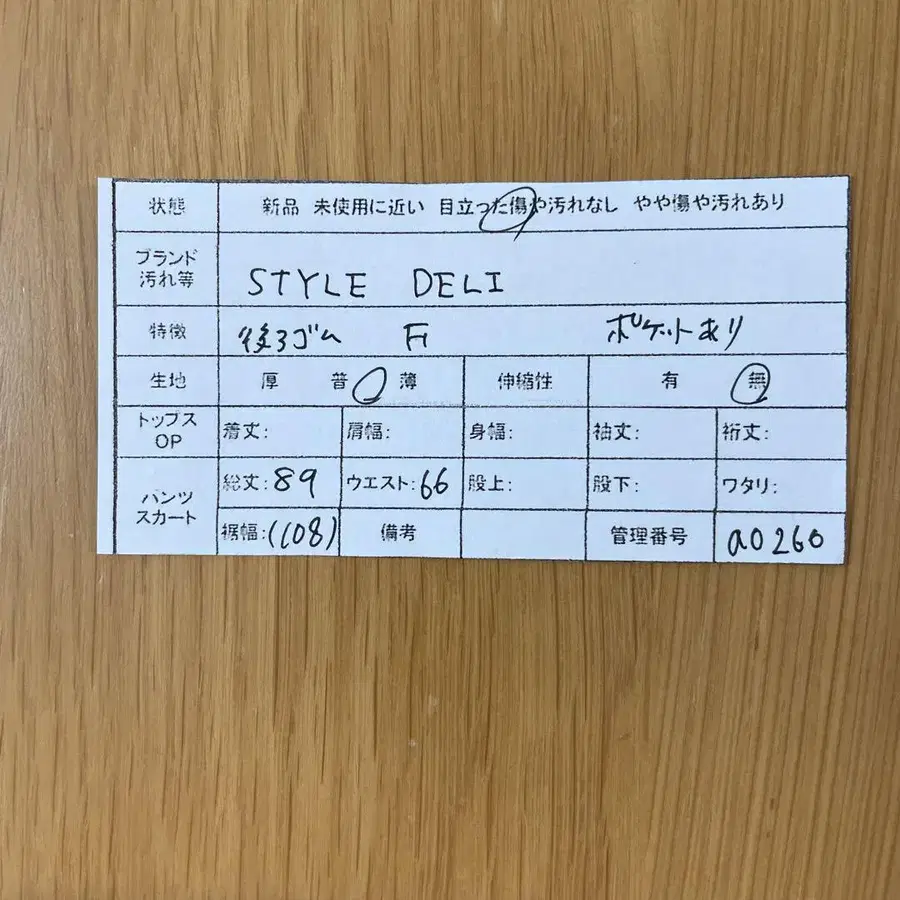 状態 新品 未使用に近い 目立った傷や汚れなし やや傷や汚れあり
ブランド
汚れ等 STYLE DELI
特徴 後ろゴム F ポケットあり
生地 厚 普 薄 伸縮性 有 無
トップス
OP 着丈: 肩幅: 身幅: 袖丈: 裄丈:
パンツ
スカート 総丈:89 ウエスト:66 股上: 股下: ワタリ:
裾幅:(108) 備考 管理番号 a0260